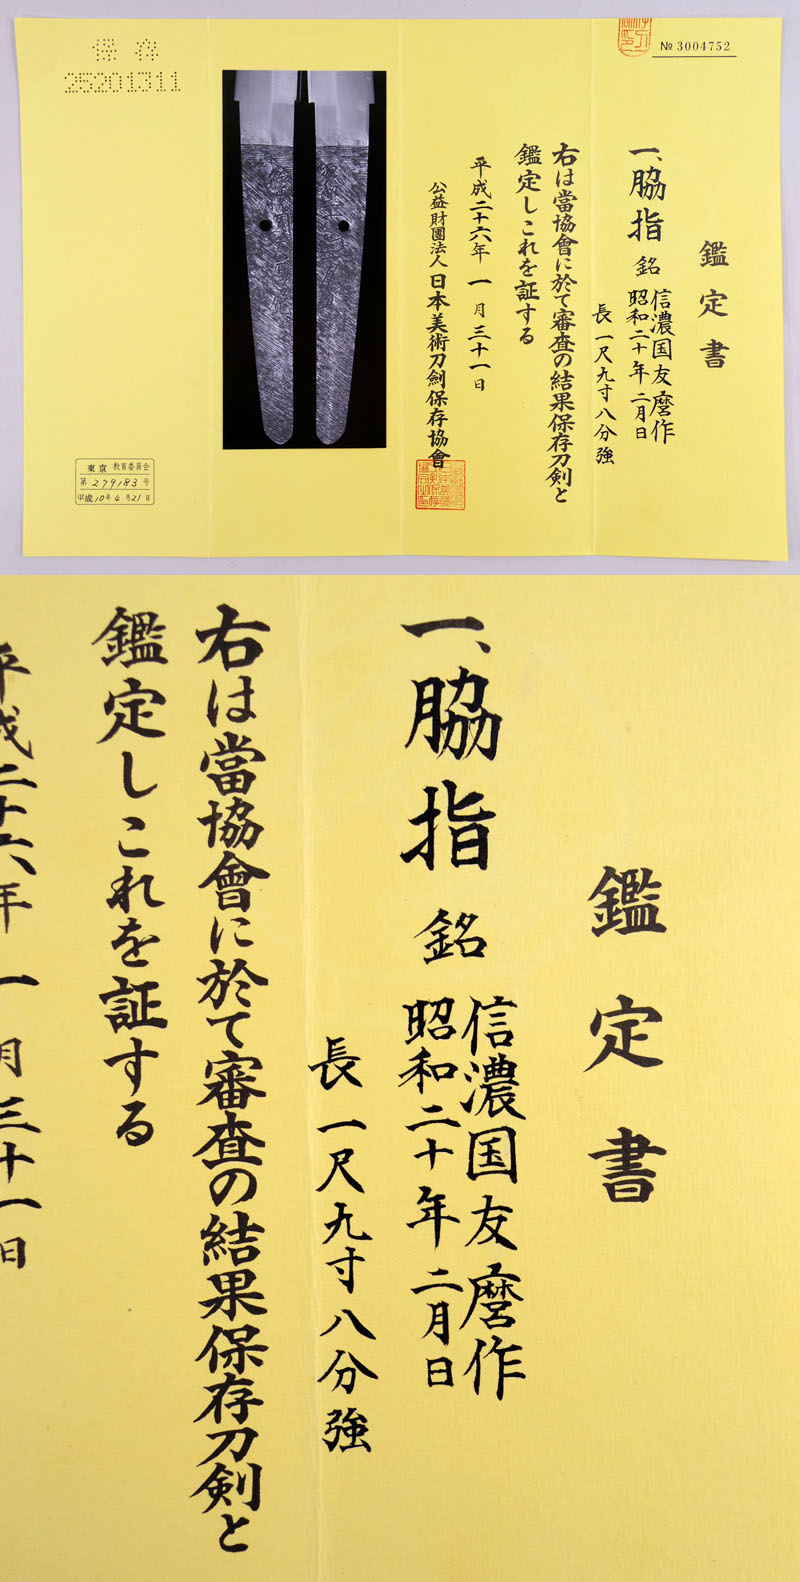 保存
25201311
№ 3004752
鑑定書
一、脇指 銘 信濃国友麿作
昭和二十年二月日
長一尺九寸八分強
右は當協會に於て審査の結果保存刀剣と
鑑定しこれを証する
平成二十六年一月三十一日
公益財團法人日本美術刀劍保存協會
東京 教育委員会
第 279183 号
平成10年4月21日
鑑定書
一、脇指 銘 信濃国友麿作
昭和二十年二月日
長一尺九寸八分強
右は當協會に於て審査の結果保存刀剣と
鑑定しこれを証する
平成二十六年一月三十一日